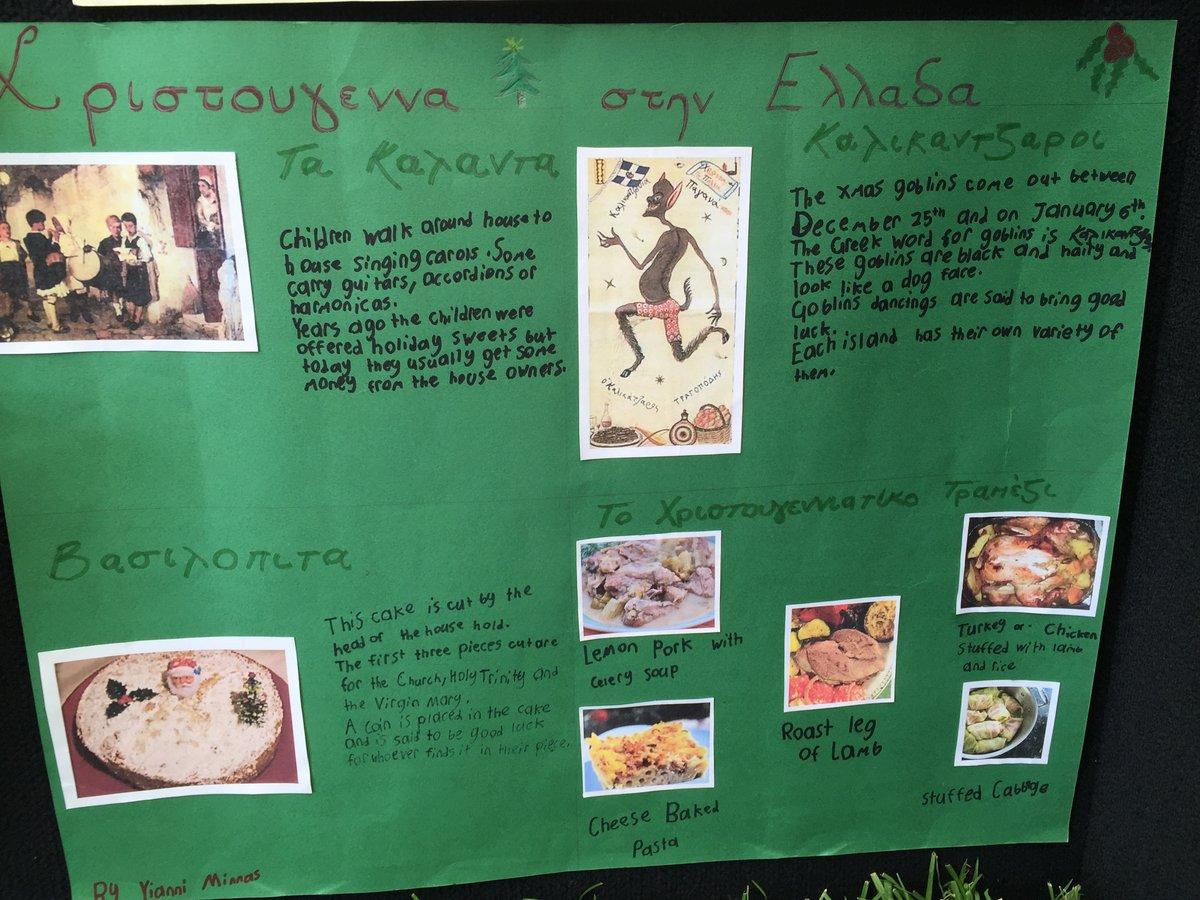 Χριστουγεννα στην Ελλαδα
Τα Καλαντα
Children walk around house to
house singing carols. Some
carry guitars, accordions or
harmonicas.
Years ago the children were
offered holiday sweets but
today they usually get some
money from the house owners.
Παγανα
ο Καλικατζαρος
ΤΡΑΓΟΠΟΔΗΣ
Καλικαντζαροι
The xmas goblins come out between
December 25th and on January 6th.
The Greek word for goblins is
These goblins are black and hairy and
look like a dog face.
Goblins dancings are said to bring good
luck.
Each island has their own variety of
them.
Βασιλοπιτα
This cake is cut by the
head of the house hold.
The first three pieces cut are
for the Church, Holy Trinity and
the Virgin Mary.
A coin is placed in the cake
and is said to be good luck
for whoever finds it in their piece.
Το Χριστουγεννιατικο Τραπέζι
Lemon Pork with
celery soup
Cheese Baked
Pasta
Roast leg
of Lamb
Turkey or Chicken
Stuffed with lamb
and rice
Stuffed Cabbage
By Yianni Minnas